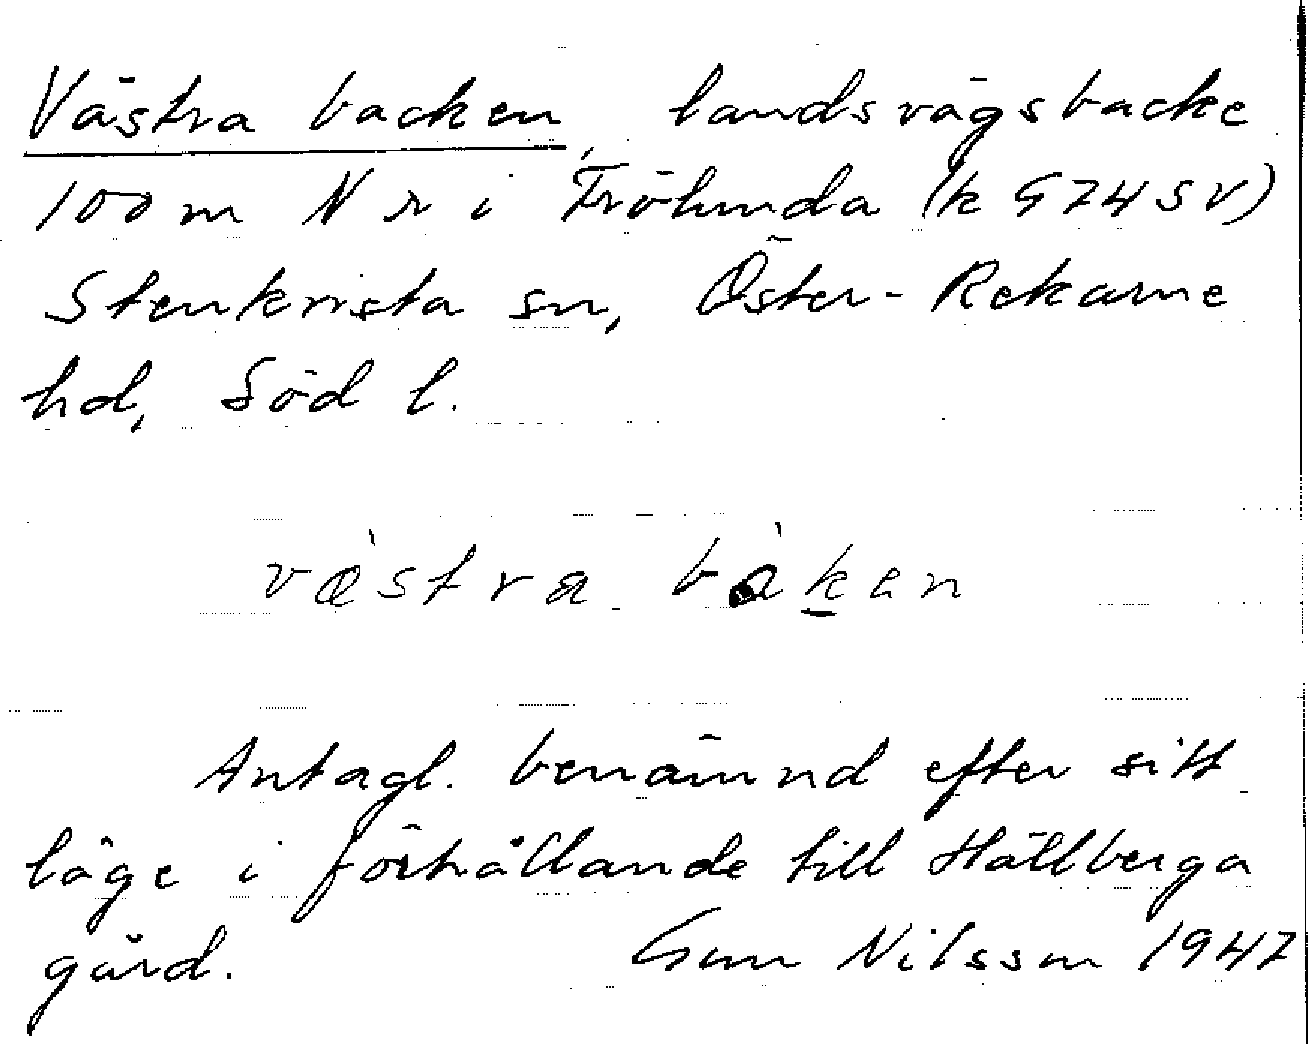 Västra backen, landsvägsbacke
100 m N r i Frölunda (k G74SV)
Stenkvista sn, Öster-Rekarne
hd, Söd l.
væ̀stra bàk̲en
Antagl. benämnd efter sitt
läge i förhållande till Hällberga
gård. Gun Nilsson 1947